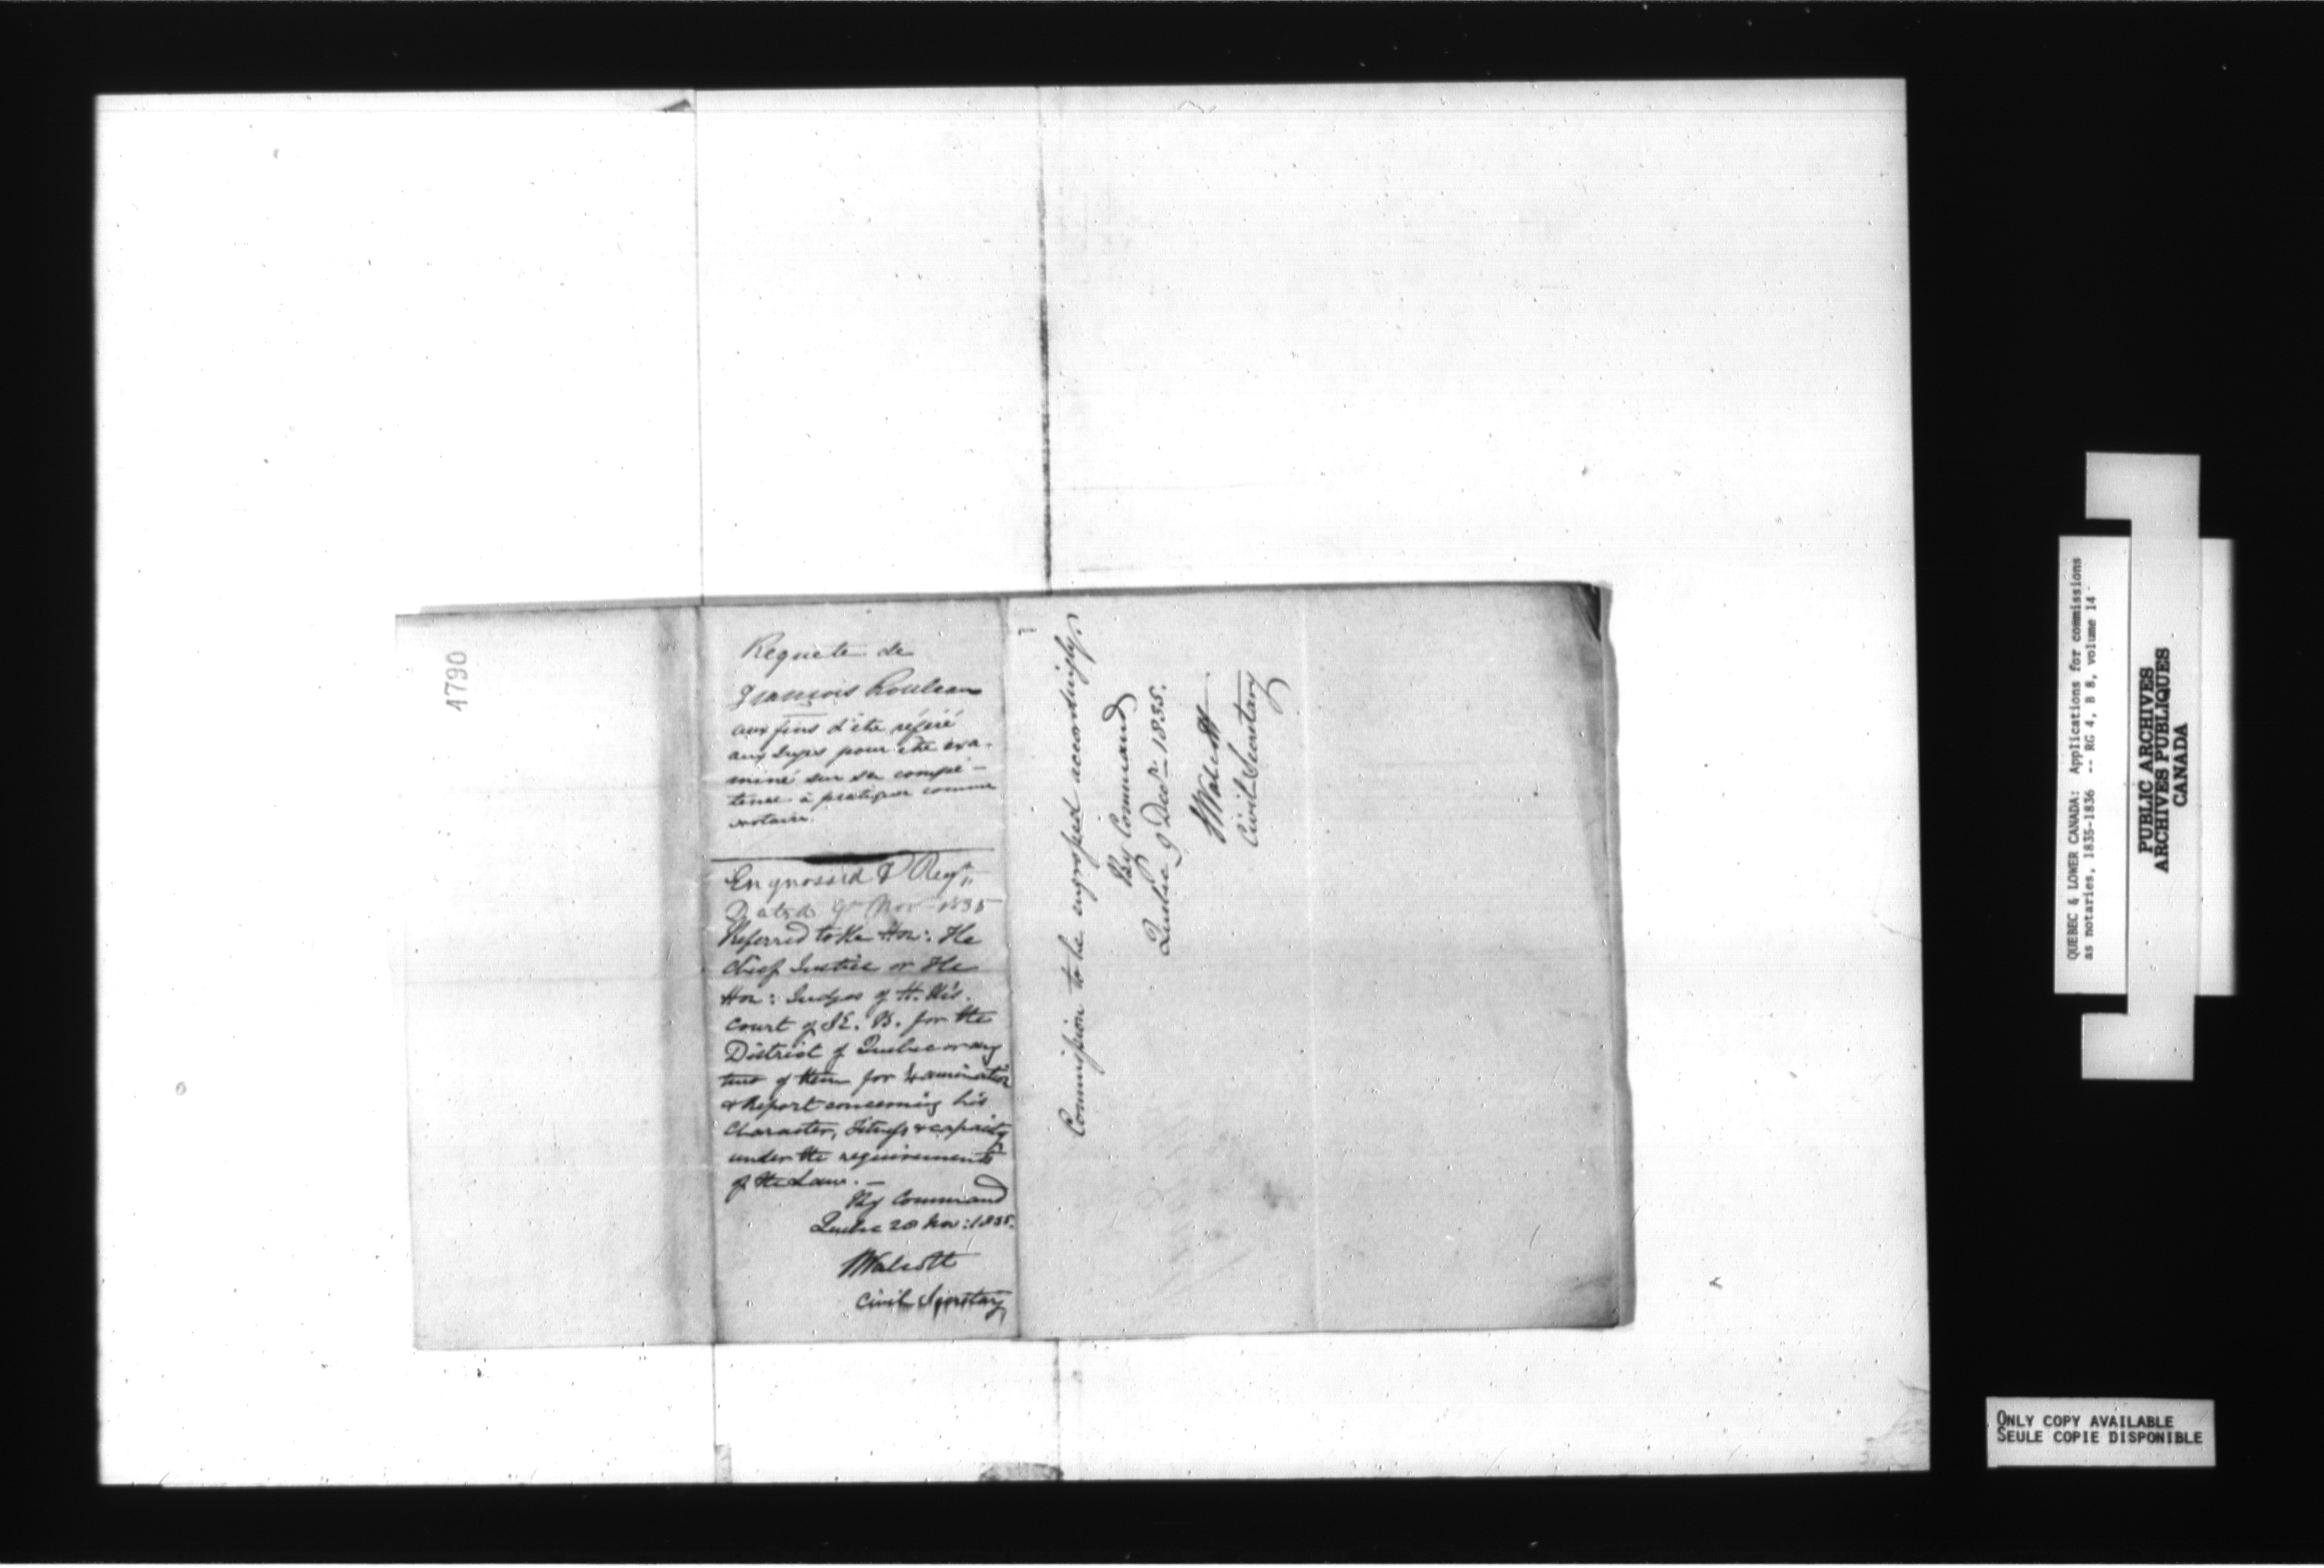 4790
Requete de
François Rouleau
aux fins d'etre référé
aux Juges pour etre exa-
miné sur sa compé-
tence à pratiquer comme
notaire.
Engrossed & Regd
Dated 9th Nov 1835
Referred to the Hon: the
Chief Justice or the
Hon: Judges of H. M's.
Court of K. B. for the
District of Quebec or any
two of them for Examination
& Report concerning his
Character, Fitness & capacity
under the requirements
of the Law. —
By Command
Quebec 28 Nov: 1835.
S Walcott
Civil Secretary
Commission to be engrossed accordingly.
By Command
Quebec 9 Decr 1835.
S Walcott
Civil Secretary
QUEBEC & LOWER CANADA: Applications for commissions
as notaries, 1835-1836 -- RG 4, B 8, volume 14
PUBLIC ARCHIVES
ARCHIVES PUBLIQUES
CANADA
ONLY COPY AVAILABLE
SEULE COPIE DISPONIBLE